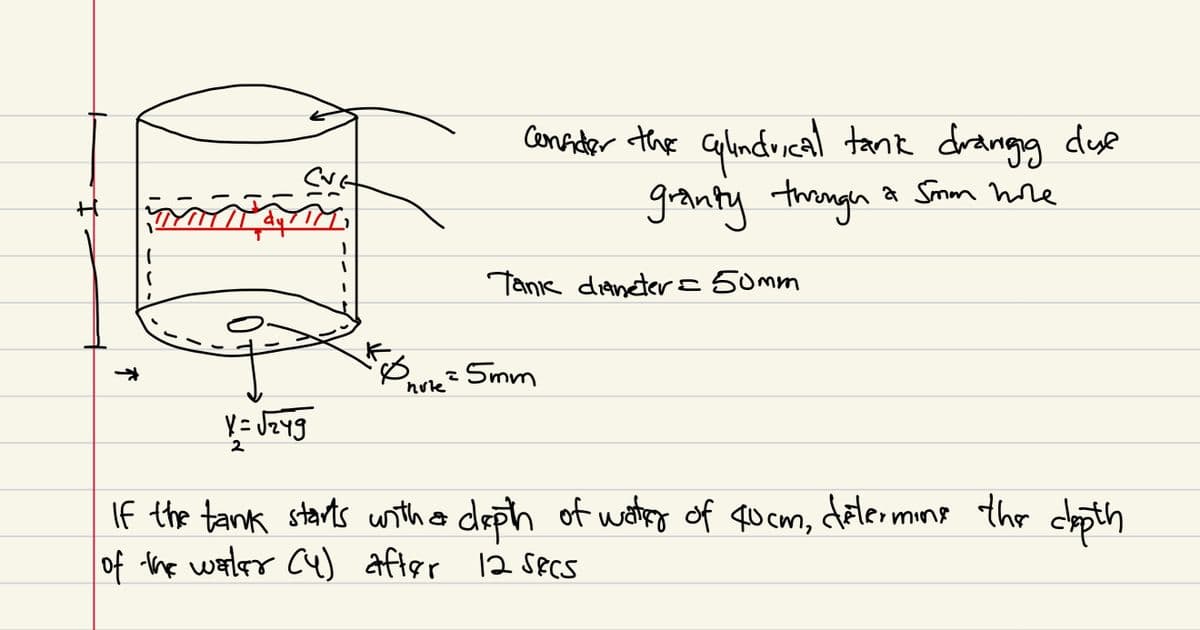 Consider the cylindrical tank draingg due
gravity through a 5mm hole
CV
dy
H
Tank diameter = 50mm
Ø hole = 5mm
V₂ = √2yg
IF the tank starts with a depth of water of 40cm, determine the depth
of the water (y) after 12 secs